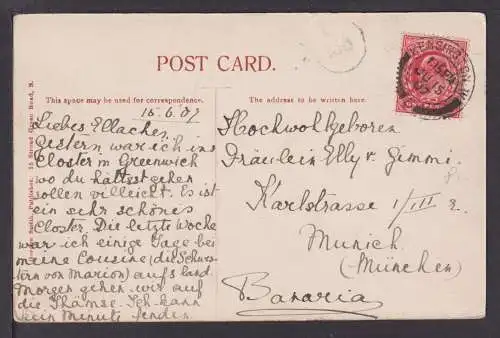 POST CARD.
This space may be used for correspondence.
The address to be written here.
15.6.07
Liebes Ellachen,
gestern war ich ins
Closter in Greenwich
wo du hättst gehen
sollen villeicht. Es ist
ein sehr schönes
Closter. Die letzte Woche
war ich einige Tage bei
meine Cousine (die Schwes-
tern von Marion) aufs Land.
Morgen gehen wir auf
die Thämse. Ich kann
kein Minute finden.
Hochwohlgeboren
Fräulein Elly v. Gimmi.
Karlstrasse 1/III r.
Munich
(München)
Bavaria
KENSINGTON
JU 15
07